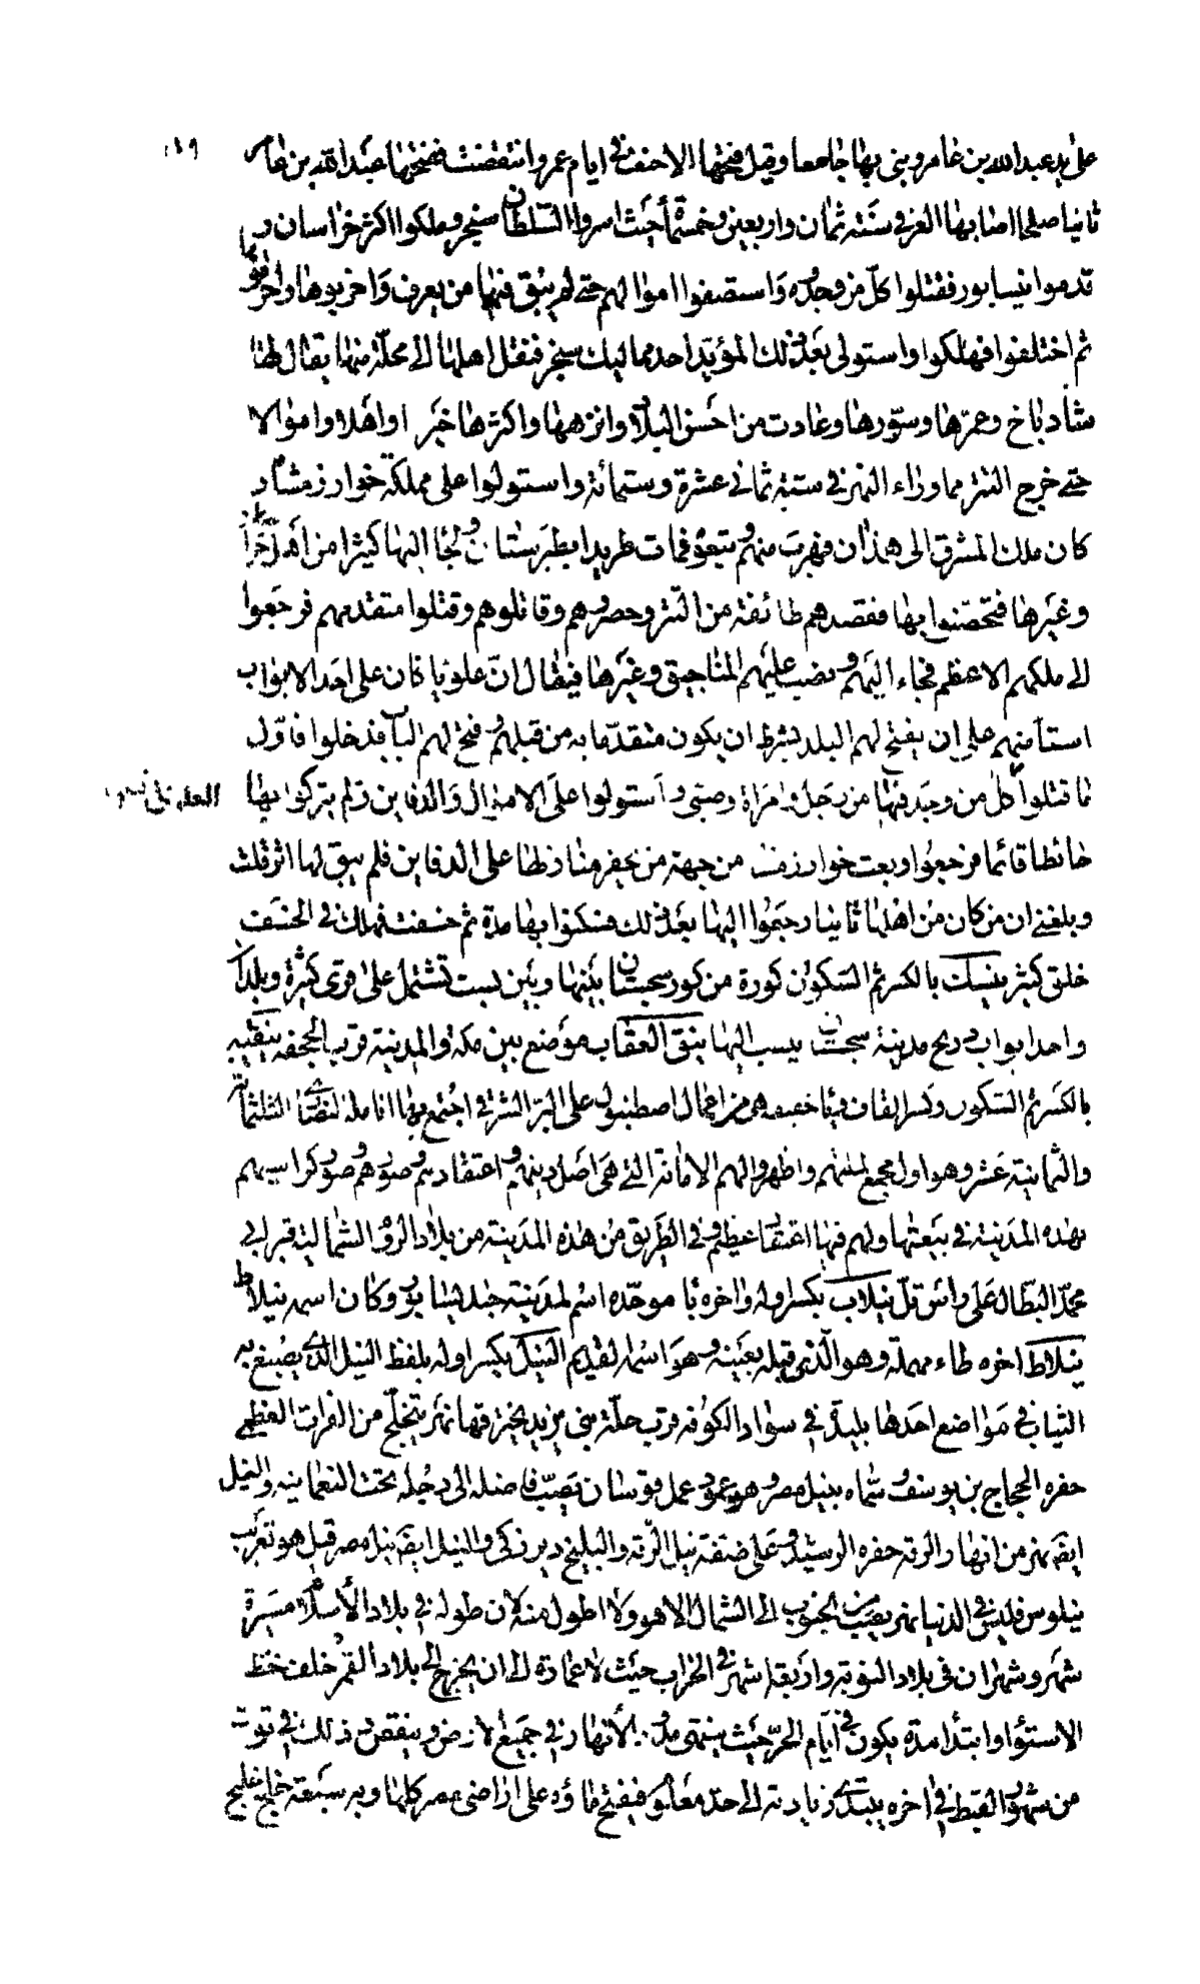 على يد عبدالله بن عامر وبنى بها جامعا وقيل فتحها الاحنف في ايام عمرو انتقضت ففتحها عبدالله بن عامر
ثانيا صلحا اصابها الغز في سنة ثمان واربعين وخمسمأية اسروا السلطان سنجر وملكوا اكثر خراسان و
قدموا نيسابور فقتلوا كل من وجدوه واستصفوا اموالهم حتى لم يبق فيها من يعرف واخربوها واحرقوها
ثم اختلفوا فهلكوا واستولى بعد ذلك المؤيد احد مماليك سنجر فنقل اهلها الى محلة منها يقال لها
شادياخ وعمرها وسورها وعادت من احسن البلاد وانزهها واكثرها خير ا واهلا واموالا
حتى خرج التتر مما وراء النهر في سنة ثماني عشرة وستمائة واستولوا على مملكة خوارزمشاه
كان ملك المشرق الى همذان فهرب منهم وتبعوه فمات طريدا بطبرستان ولجا اليها كثيرا من اهل خراسان
وغيرها فتحصنوا بها فقصدهم طائفة من التتر وحصروهم وقاتلوهم وقتلوا متقدمهم فرجعوا
الى ملكهم الاعظم فجاء اليهم ونصب عليهم المناجيق وغيرها فيقال ان علويا كان على احد الابواب
استأمنهم على ان يفتح لهم البلد بشرط ان يكون متقدما به من قبلهم وفتح لهم الباب فدخلوا فاول
ما قتلوا كل من وجد فيها من رجل وامراة وصبى واستولوا على الاموال والدفاين ولم يتركوا بها
حائطا قائما فرجعوا وبعث خوارزم من جهته من يحفر منازلها على الدفاين فلم يبق لها اثر قلت
وبلغنى ان من كان من اهلها ثانيا رجعوا اليها بعد ذلك فسكنوا بها مدة ثم خسفت فهلك في الخسف
خلق كثير نيسك بالكسر ثم السكون كورة من كور سجستان بينها وبين بست تشتمل على قرى كثيرة وبلدا
واحد ابواب زرنج مدينة سجستان ينسب اليها نيق العقاب موضع بين مكة والمدينة قرب الجحفه نيقيه
بالكسر ثم السكون وكسر القاف وياء خفيفه هي من اعمال اصطنبول على البر الشرقى اجتمع بها اباء ملة النصارى الثلثمائة
والثمانية عشر وهو اول مجمع لملتهم واظهروا لهم الامانة التى هى اصل دينهم واعتقادهم وصورهم وصور كراسيهم
بهذه المدينة في بيعتها ولهم فيها اعتقاد عظيم وفي الطريق من هذه المدينة من بلاد الروم الشمالية قبر ابي
محمد البطال على رأس تل نيلاب بكسر اوله واخره با موحده اسم لمدينة جنديسابور وكان اسمه نيلاط
نيلاط اخره طاء مهملة وهو الذى قبله بعينه وهو اسمها القديم النيل بكسر اوله بلفظ النيل الذى يصبغ به
الثياب في مواضع احدها بليدة في سواد الكوفه قرب حلة بنى مزيد يخترقها نهر يتخلج من الفرات العظمى
حفره الحجاج بن يوسف وسماه بنيل مصر وهو عمود عمل قوسان يصب فاضله الى دجله تحت النعمانيه والنيل
ايضا نهر من انهار الرقه حفره الرشيد وعلى ضفة نيل الرقه والبليخ دير زكى والنيل ايضا نيل مصر قيل هو تعريب
نيلوس فليس في الدنيا نهر يصب من الجنوب الى الشمال الا هو ولا اطول منه لان طوله في بلاد الأسلام مسيرة
شهر وشهران في بلاد النوبه واربعة اشهر في الخراب حيث لا عمارة الى ان يخرج الى بلاد القمر خلف خط
الاستواء وابتدأ مده يكون في ايام الحر حيث ينتهى مد الأنهار في جميع الارض وينقص وذلك في توت
من شهور القبط في اخره يبتدئ زيادته الى حد معلوم فيفتح ماؤه على اراضى مصر كلها وبه سبعة خلج خليج